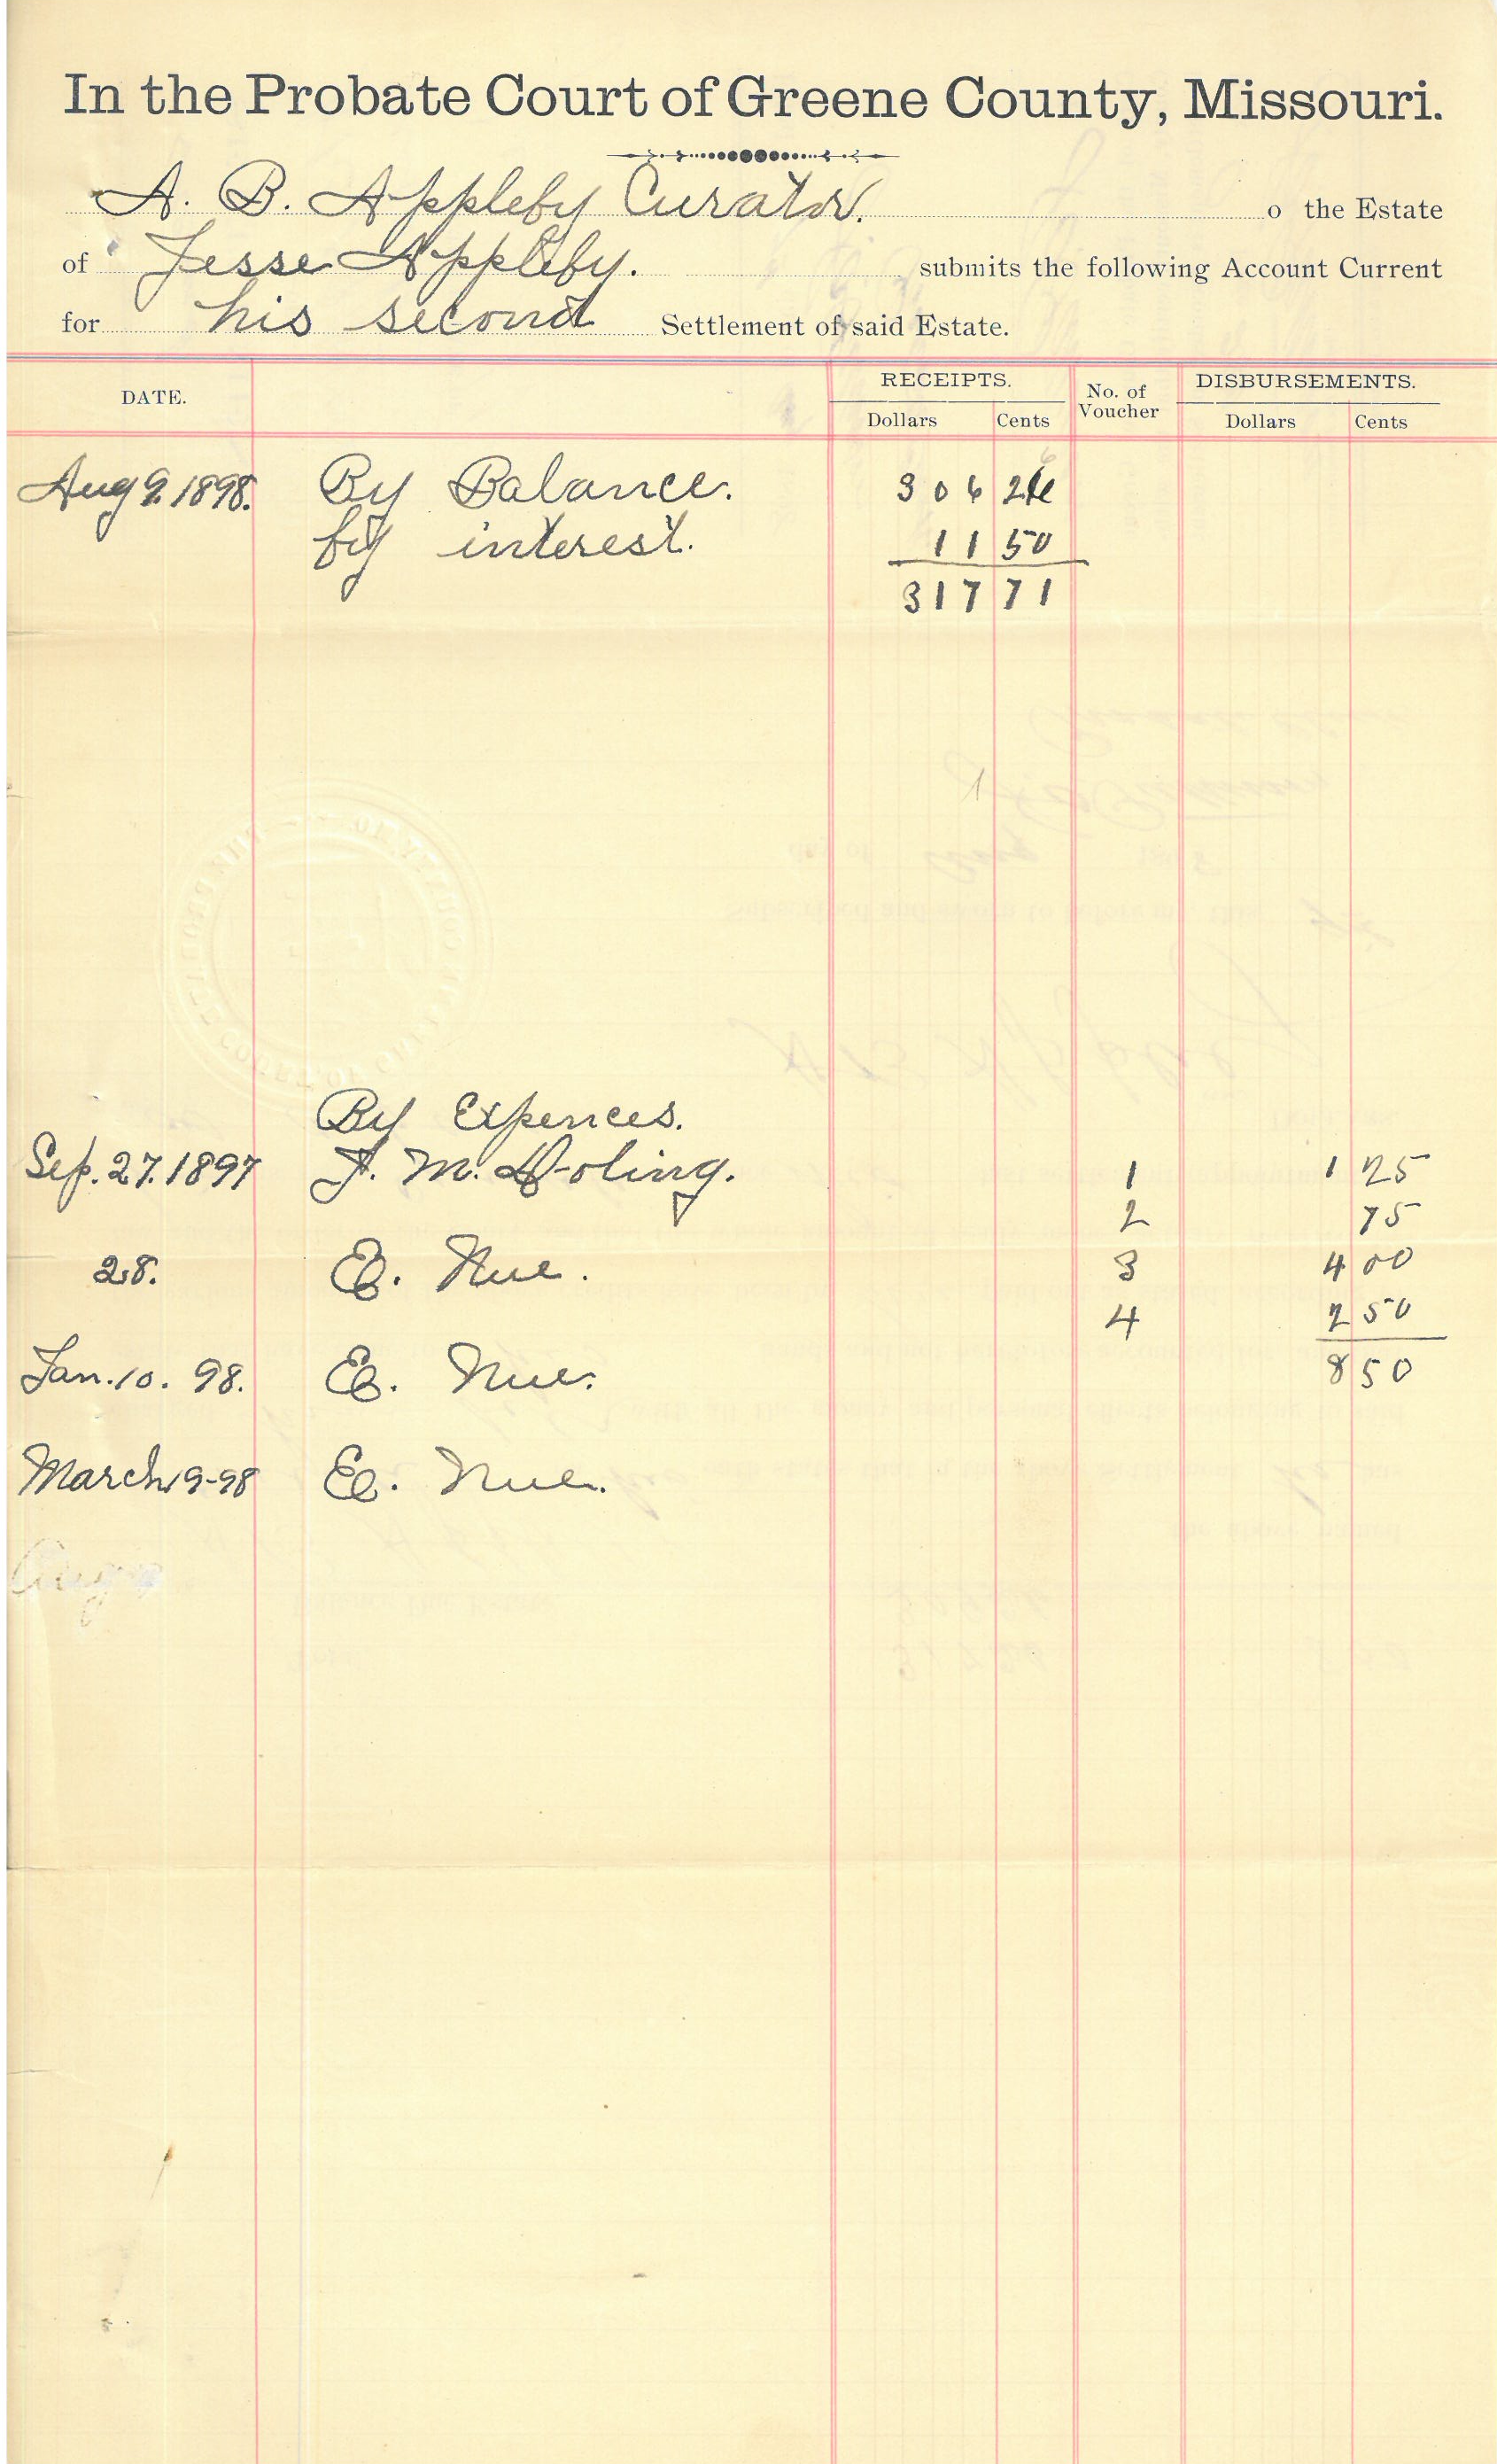 In the Probate Court of Greene County, Missouri.
A. B. Appleby Curator. o the Estate
of Jesse Appleby. submits the following Account Current
for his second Settlement of said Estate.
DATE. RECEIPTS. No. of Voucher DISBURSEMENTS.
Dollars Cents Dollars Cents
Aug 9. 1898. By Balance. 306
by interest. 11 50
317 71
By Expences.
Sep. 27. 1897 J. M. Doling. 1 1 25
2 75
28. E. Nue. 3 4 00
4 2 50
Jan. 10. 98. E. Nue. 8 50
March 9-98 E. Nue.